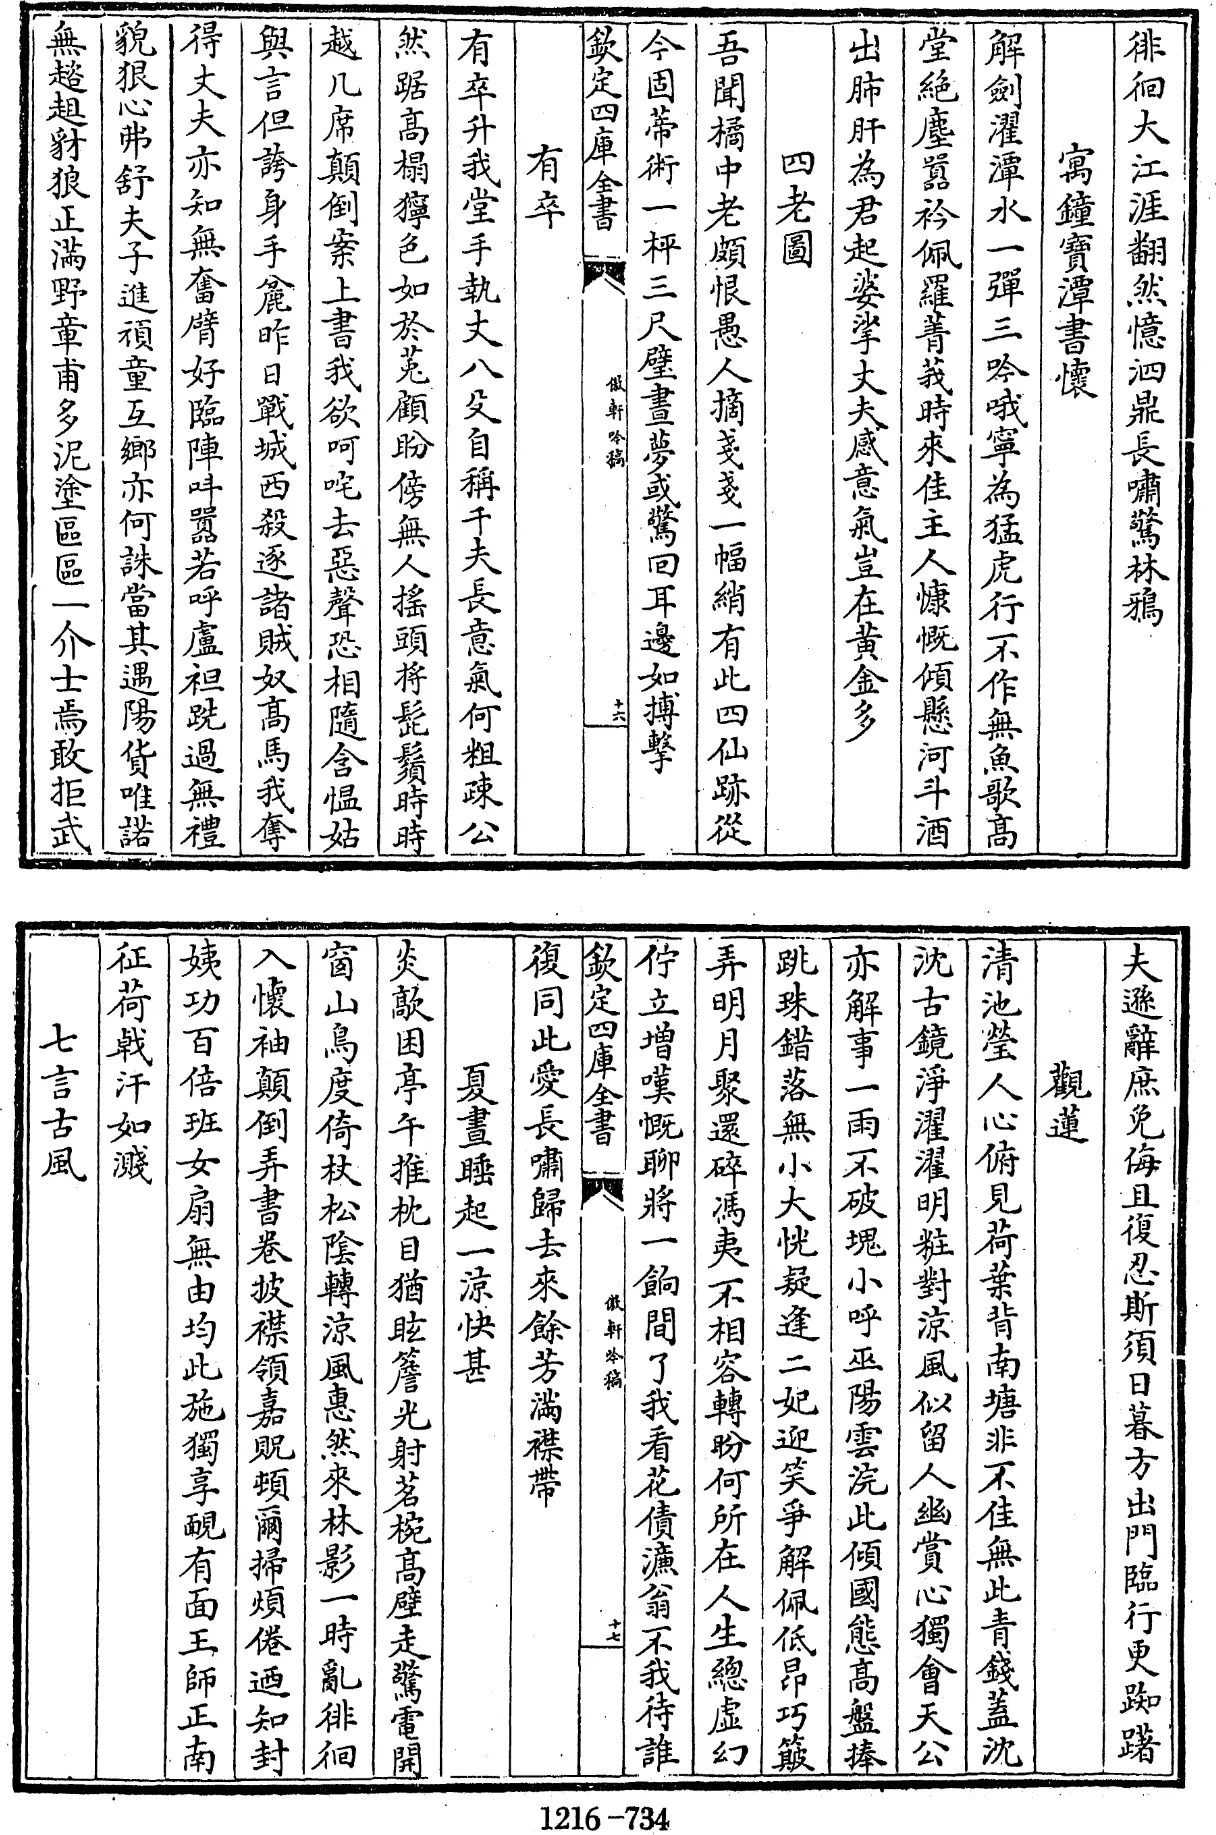 徘徊大江涯翻然憶泗鼎長嘯驚林鴉
寓鐘寶潭書懷
解劍濯潭水一彈三吟哦寧為猛虎行不作無魚歌高
堂絕塵囂衿佩羅菁莪時來佳主人慷慨傾懸河斗酒
出肺肝為君起婆娑丈夫感意氣豈在黃金多
四老圖
吾聞橘中老頗恨愚人摘戔戔一幅綃有此四仙跡從
今固蒂術一枰三尺壁晝夢或驚回耳邊如搏擊
欽定四庫全書
徽軒吟稿
十六
有卒
有卒升我堂手執丈八殳自稱千夫長意氣何粗疎公
然踞高榻獰色如於菟顧盼傍無人搖頭捋髭鬚時時
越几席顛倒案上書我欲呵咤去惡聲恐相隨含愠姑
與言但誇身手麄昨日戰城西殺逐諸賊奴高馬我奪
得丈夫亦知無奮臂好臨陣呌囂若呼盧袒跣過無禮
貌狠心弗舒夫子進頑童互鄉亦何誅當其遇陽貨唯諾
無趦趄豺狼正滿野章甫多泥塗區區一介士焉敢拒武
夫遜辭庶免侮且復忍斯須日暮方出門臨行更踟躇
觀蓮
清池瑩人心俯見荷葉背南塘非不佳無此青錢蓋沈
沈古鏡淨濯濯明粧對涼風似留人幽賞心獨會天公
亦解事一雨不破塊小呼巫陽雲浣此傾國態高盤捧
跳珠錯落無小大恍疑逢二妃迎笑爭解佩低昂巧簸
弄明月聚還碎馮夷不相容轉盼何所在人生總虛幻
佇立增嘆慨聊將一餉間了我看花債濂翁不我待誰
欽定四庫全書
徽軒吟稿
十七
復同此愛長嘯歸去來餘芳滿襟帶
夏晝睡起一涼快甚
炎歊困亭午推枕目猶眩簷光射茗椀高壁走驚電開
窗山鳥度倚杖松陰轉涼風惠然來林影一時亂徘徊
入懷袖顛倒弄書卷披襟領嘉貺頓爾掃煩倦迺知封
姨功百倍班女扇無由均此施獨享靦有面王師正南
征荷戟汗如濺
七言古風
1216-734